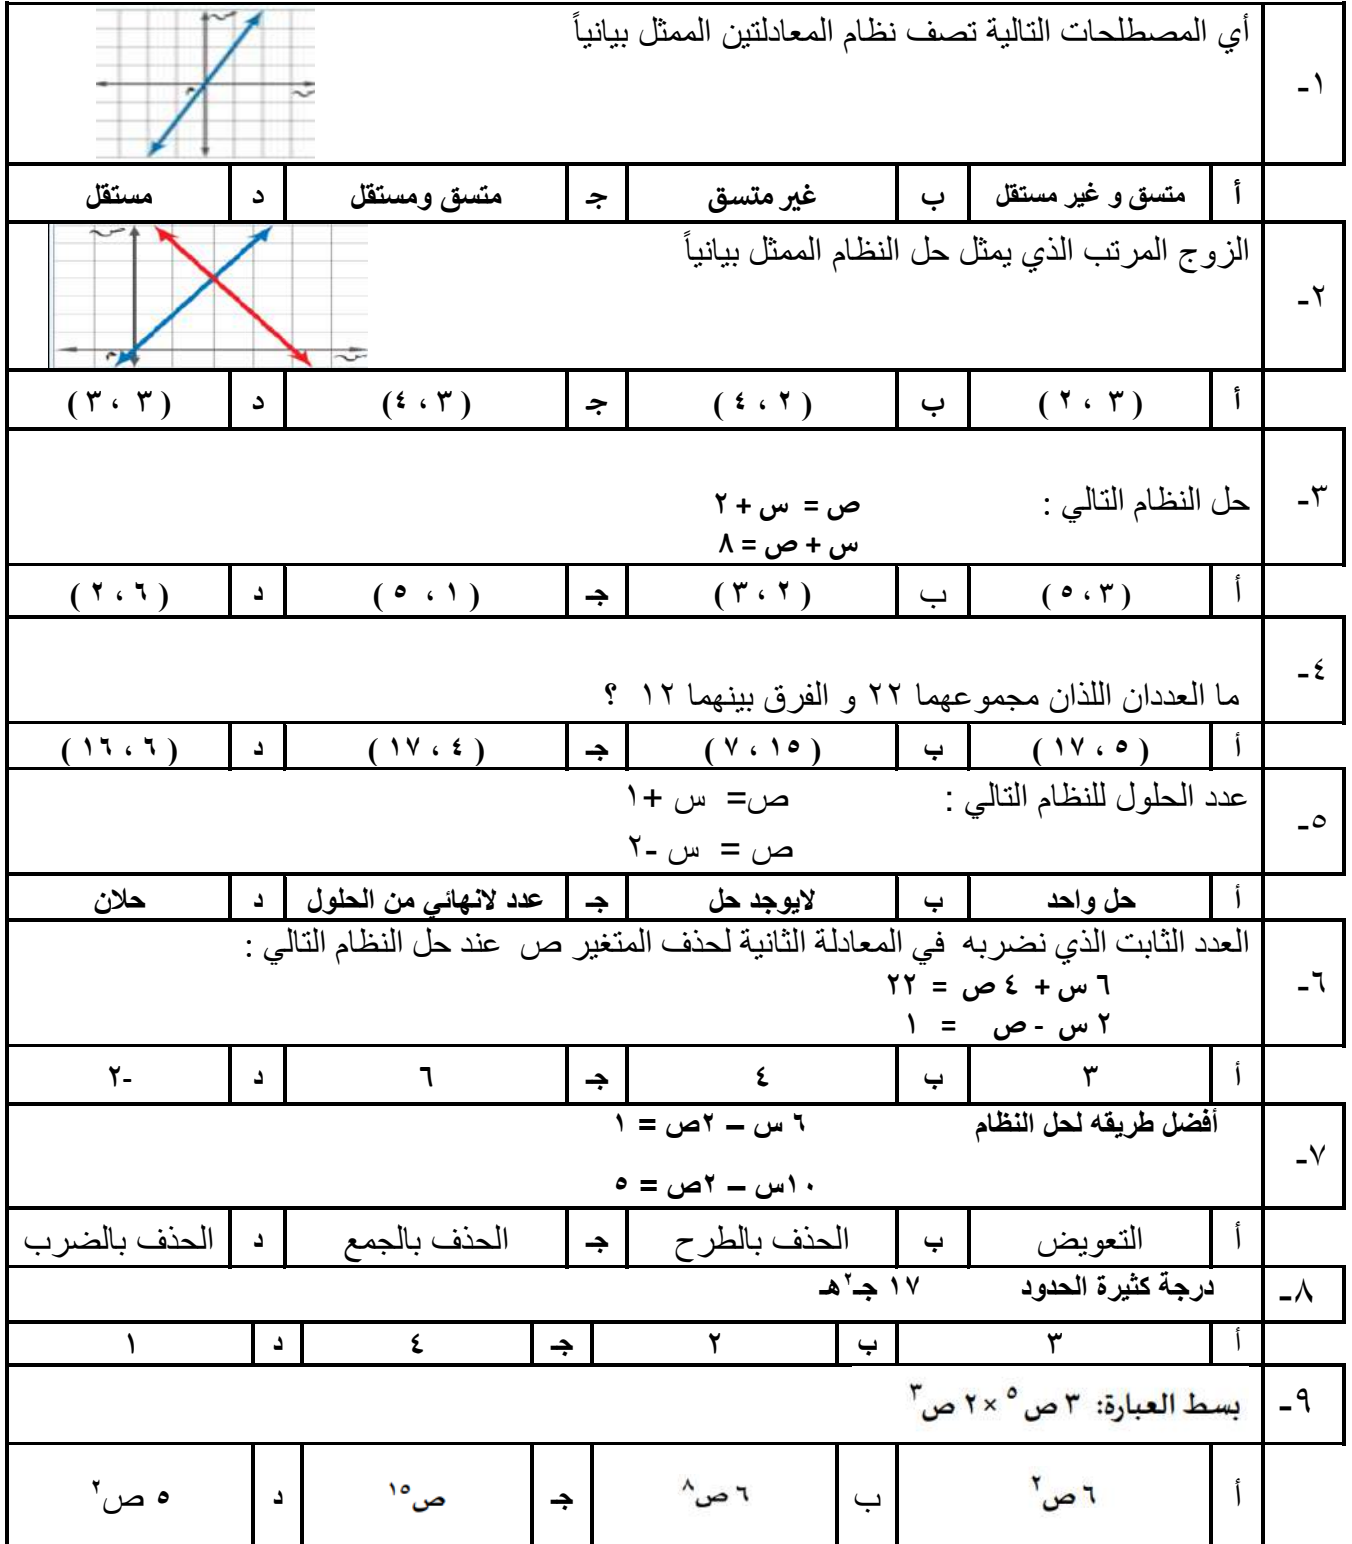 ١- أي المصطلحات التالية تصف نظام المعادلتين الممثل بيانياً
أ متسق و غير مستقل ب غير متسق جـ متسق ومستقل د مستقل
٢- الزوج المرتب الذي يمثل حل النظام الممثل بيانياً
أ ( ٣ ، ٢ ) ب ( ٢ ، ٤ ) جـ ( ٣ ، ٤ ) د ( ٣ ، ٣ )
٣- حل النظام التالي : ص = س + ٢
س + ص = ٨
أ ( ٣ ، ٥ ) ب ( ٢ ، ٣ ) جـ ( ١ ، ٥ ) د ( ٦ ، ٢ )
٤- ما العددان اللذان مجموعهما ٢٢ و الفرق بينهما ١٢ ؟
أ ( ٥ ، ١٧ ) ب ( ١٥ ، ٧ ) جـ ( ٤ ، ١٧ ) د ( ٦ ، ١٦ )
٥- عدد الحلول للنظام التالي : ص= س +١
ص = س -٢
أ حل واحد ب لايوجد حل جـ عدد لانهائي من الحلول د حلان
٦- العدد الثابت الذي نضربه في المعادلة الثانية لحذف المتغير ص عند حل النظام التالي :
٦ س + ٤ ص = ٢٢
٢ س - ص = ١
أ ٣ ب ٤ جـ ٦ د -٢
٧- أفضل طريقه لحل النظام ٦ س – ٢ص = ١
١٠س – ٢ص = ٥
أ التعويض ب الحذف بالطرح جـ الحذف بالجمع د الحذف بالضرب
٨- درجة كثيرة الحدود ١٧ جـ٢هـ
أ ٣ ب ٢ جـ ٤ د ١
٩- بسط العبارة: ٣ ص ٥ × ٢ ص ٣
أ ٦ ص٢ ب ٦ ص٨ جـ ص١٥ د ٥ ص٢